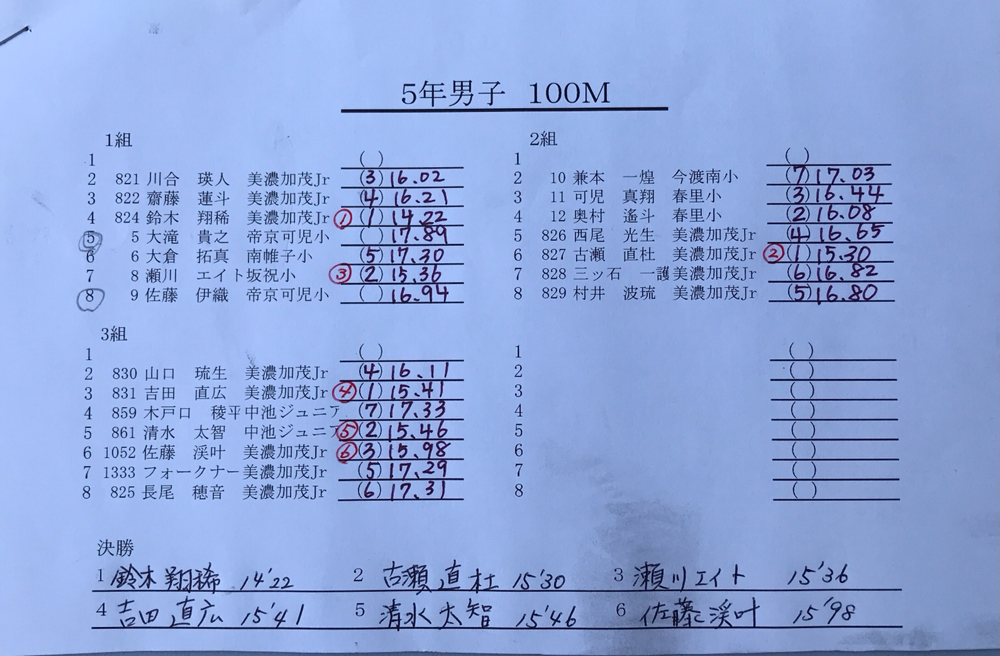 5年男子 100M
1組
1 ( )
2 821 川合 瑛人 美濃加茂Jr (3) 16.02
3 822 齋藤 蓮斗 美濃加茂Jr (4) 16.21
4 824 鈴木 翔稀 美濃加茂Jr ① (1) 14.22
5 5 大滝 貴之 帝京可児小 ( ) 17.89
6 6 大倉 拓真 南帷子小 (5) 17.30
7 8 瀬川 エイト坂祝小 ③ (2) 15.36
8 9 佐藤 伊織 帝京可児小 ( ) 16.94
2組
1 ( )
2 10 兼本 一煌 今渡南小 (7) 17.03
3 11 可児 真翔 春里小 (3) 16.44
4 12 奥村 遙斗 春里小 (2) 16.08
5 826 西尾 光生 美濃加茂Jr (4) 16.65
6 827 古瀬 直杜 美濃加茂Jr ② (1) 15.30
7 828 三ッ石 一護美濃加茂Jr (6) 16.82
8 829 村井 波琉 美濃加茂Jr (5) 16.80
3組
1 ( )
2 830 山口 琉生 美濃加茂Jr (4) 16.11
3 831 吉田 直広 美濃加茂Jr ④ (1) 15.41
4 859 木戸口 稜平中池ジュニア (7) 17.33
5 861 清水 太智 中池ジュニア ⑤ (2) 15.46
6 1052 佐藤 渓叶 美濃加茂Jr ⑥ (3) 15.98
7 1333 フォークナー美濃加茂Jr (5) 17.29
8 825 長尾 穂音 美濃加茂Jr (6) 17.31
1 ( )
2 ( )
3 ( )
4 ( )
5 ( )
6 ( )
7 ( )
8 ( )
決勝
1 鈴木翔稀 14'22 2 古瀬直杜 15'30 3 瀬川エイト 15'36
4 吉田直広 15'41 5 清水太智 15'46 6 佐藤渓叶 15'98